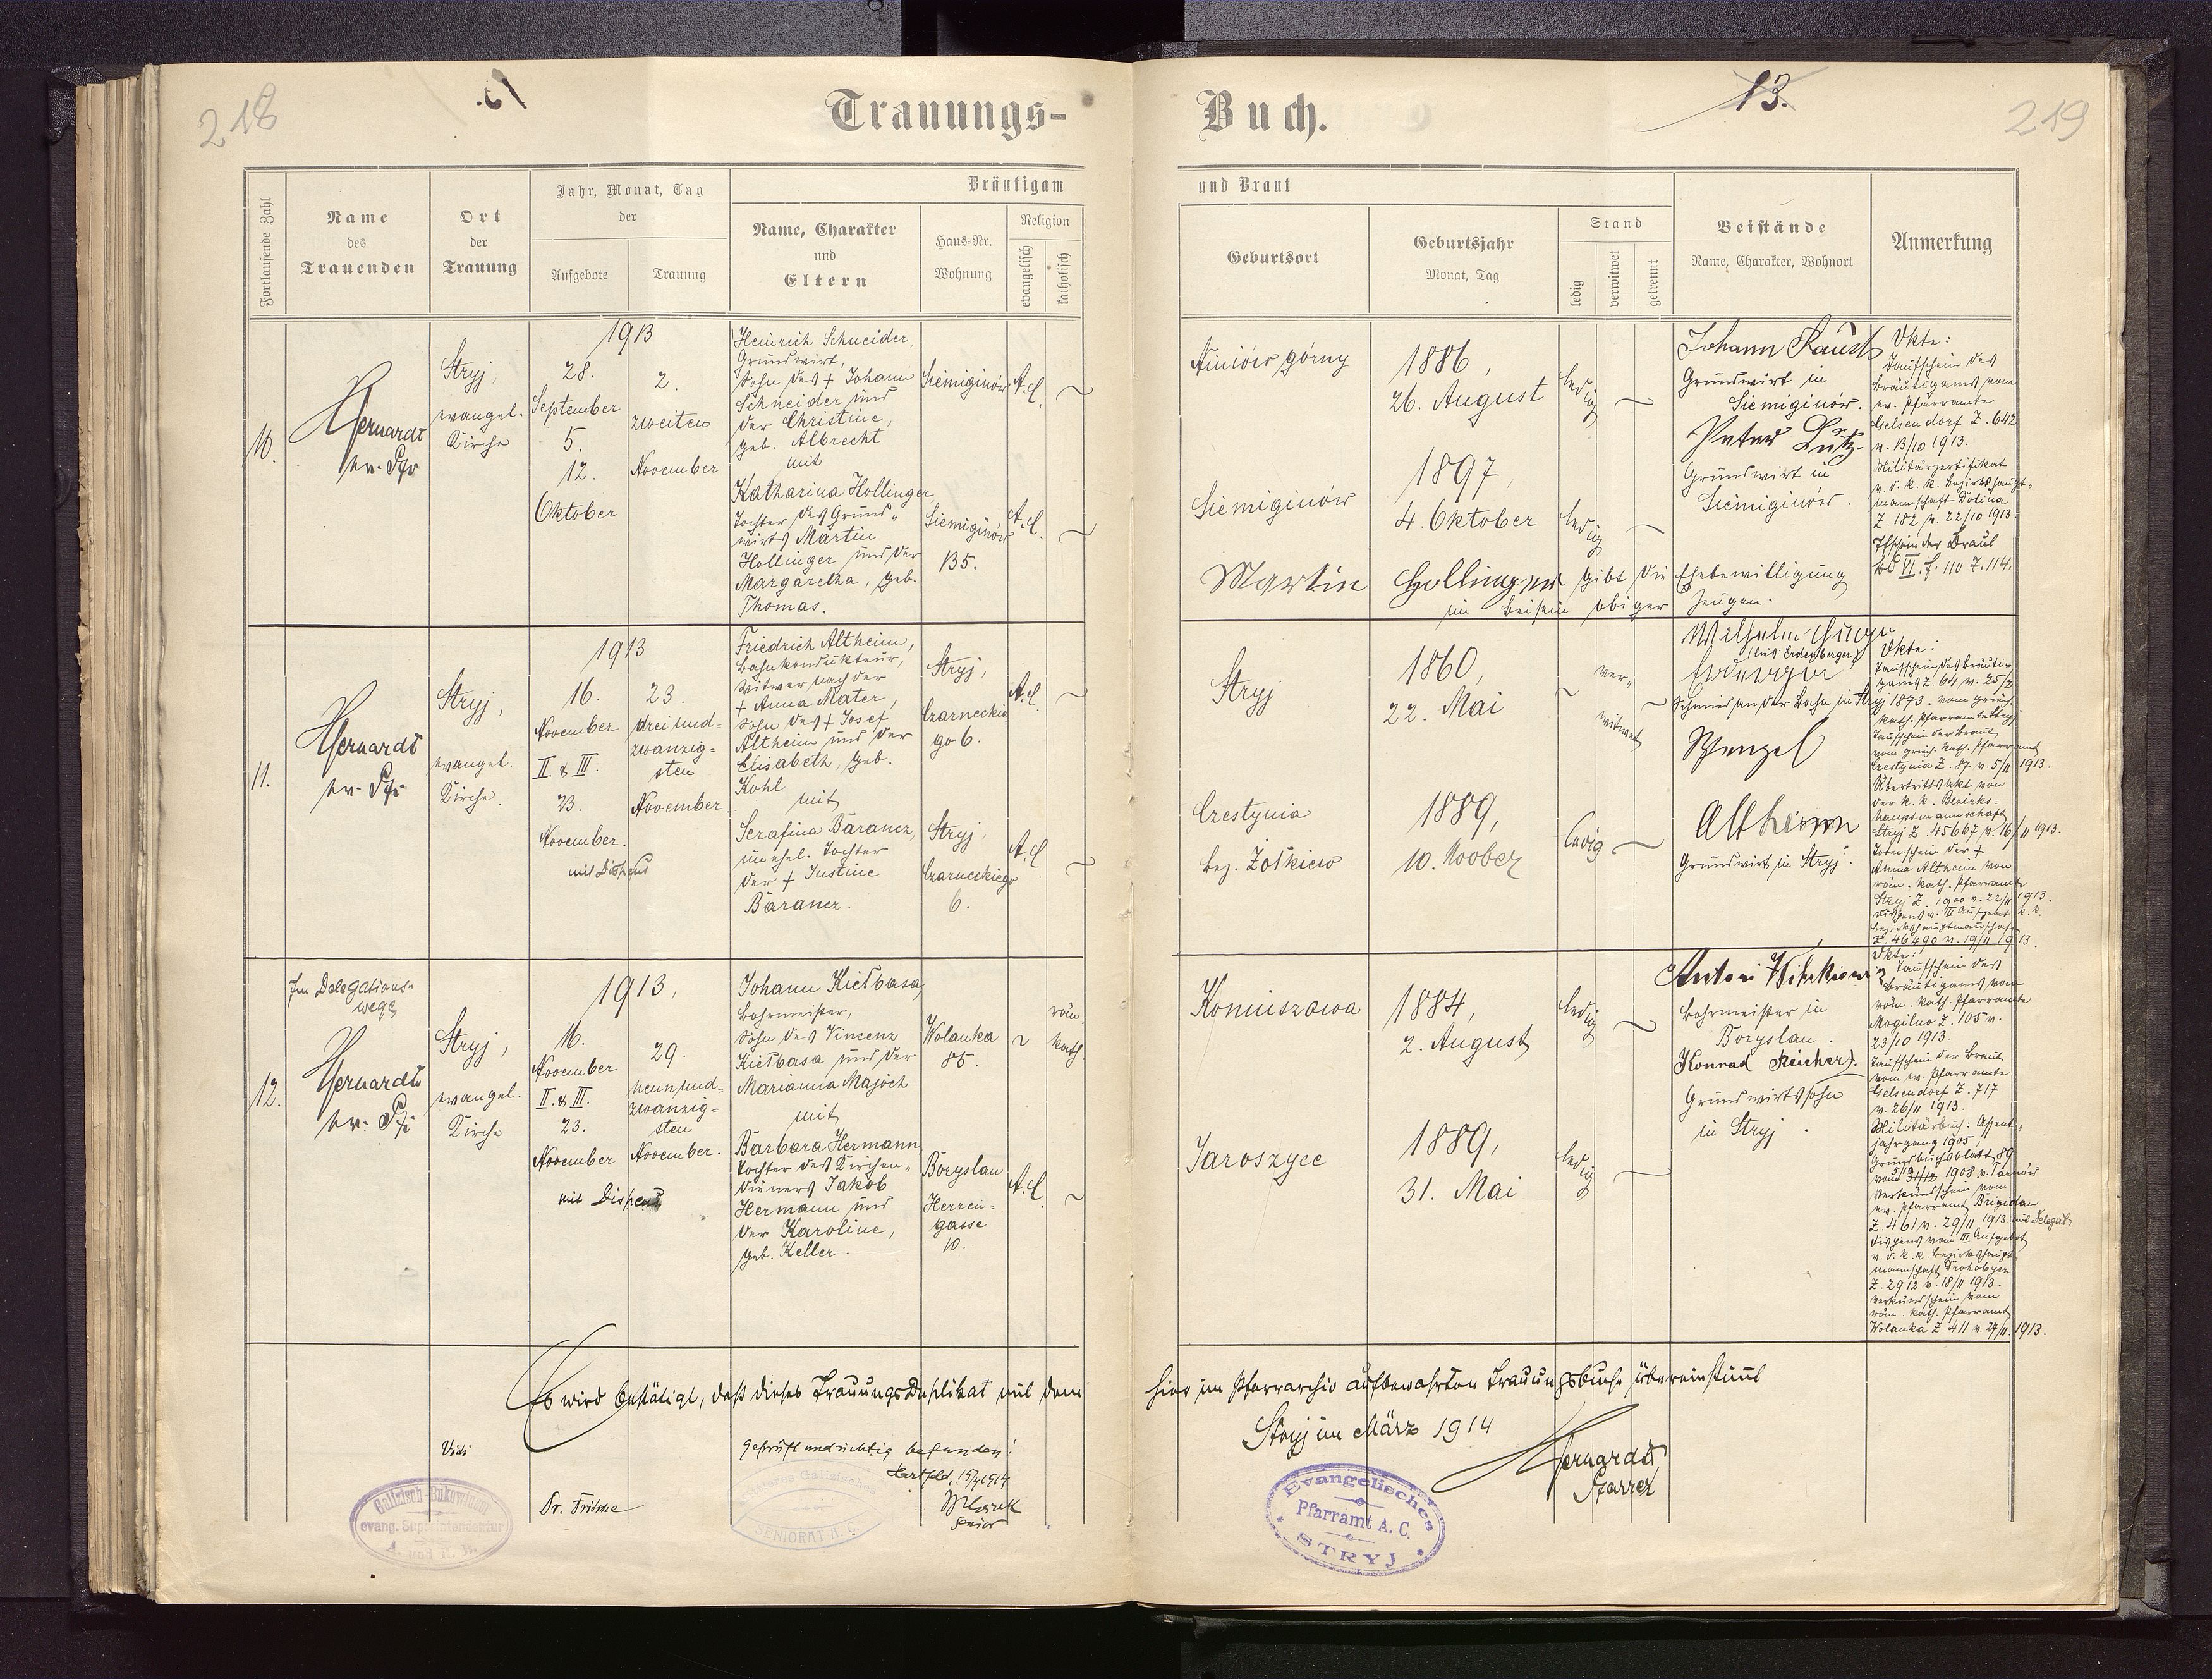 218
13.
219
Trauungs-
Buch.
Fortlaufende Zahl
Name
des
Trauenden
Ort
der
Trauung
Jahr, Monat, Tag
der
Aufgebote
Trauung
Bräutigam
Name, Charakter
und
Eltern
Haus-Nr.
Wohnung
Religion
evangelisch
katholisch
und Braut
Geburtsort
Geburtsjahr
Monat, Tag
Stand
ledig
verwitwet
getrennt
Beistände
Name, Charakter, Wohnort
Anmerkung
10.
ev. Pfr
Stryj,
evangel.
Kirche
1913
28.
September
5.
12.
Oktober
2.
zweiten
November
Heinrich Schneider,
Grundwirt,
Sohn des + Johann
Schneider und
der Christine,
geb. Albrecht
mit
Katharina Hollinger
Tochter des Grund-
wirts Martin
Hollinger und der
Margaretha, geb.
Thomas.
Siemiginów
A.C.
Siemiginów
135.
A.C.
górny
1886,
26. August
ledig
Siemiginów
1897,
4. Oktober
ledig
Martin Hollinger gibt die Ehebewilligung
im Beisein obiger Zeugen.
Johann
Grundwirt in
Siemiginów.
Peter Lutz
Grundwirt in
Siemiginów.
Akte:
Taufschein des
Bräutigams vom
ev. Pfarramte
Gelsendorf Z. 642
v. 13/10 1913.
Militärzertifikat
v. d. k. k. Bezirkshaupt-
mannschaft Dolina
Z. 182 v. 22/10 1913.
Tfschein der Braut
Bd VI. f. 110 Z. 114.
11.
ev. Pfr
Stryj,
evangel.
Kirche.
1913
16.
November
II. & III.
23.
November.
mit Dispens
23.
dreiund-
zwanzig-
sten
November
Friedrich Altheim,
Bahnkondukteur,
Witwer nach der
+ Anna Mater,
Sohn des + Josef
Altheim und der
Elisabeth, geb.
Kohl
mit
Serafina Baranez,
unehel. Tochter
der + Justine
Baranez.
Stryj,
Czarneckie
go 6.
A.C.
Stryj,
Czarneckiego
6.
A.C.
Stryj
1860,
22. Mai
ver-
witwet
Bez. Żołkiew
1889,
10. November
ledig
Wilhelm
Schmied an der Bahn in Stryj
Wenzel
Altheim
Grundwirt in Stryj.
Akte:
Taufschein des Bräuti-
gams Z. 64 v. 25/2
1873. vom griech.
kath. Pfarramte Stryj
Taufschein der Braut
vom griech. kath. Pfarramt
Z. 87 v. 5/11 1913.
Übertrittsakt von
der k. k. Bezirks-
hauptmannschaft
Stryj Z. 45667 v. 16/11 1913.
Totenschein der +
Anna Altheim vom
röm. kath. Pfarramte
Stryj Z. 1900 v. 22/11 1913.
Dispens v. III Aufgebot k. k.
Bezirkshauptmannschaft
Z. 46490 v. 19/11 1913.
Im Delegations-
wege
12.
ev. Pfr
Stryj,
evangel.
Kirche
1913,
16.
November
II. & III.
23.
November
mit Dispens
29.
neunund-
zwanzig-
sten
November.
Johann Kiełbasa,
Bohrmeister,
Sohn des Vincenz
Kiełbasa und der
Marianna Majoch
mit
Barbara Hermann
Tochter des Kirchen-
dieners Jakob
Hermann und
der Karoline,
geb. Keller.
Wolanka
85.
röm.
kath.
Boryslau
Herren-
gasse
10.
A.C.
Komiszowa
1884,
2. August
ledig
Jaroszyce
1889,
31. Mai
ledig
Antoni
Bohrmeister in
Boryslau.
Konrad Reichert.
Grundwirtssohn
in Stryj.
Akte:
Taufschein des
Bräutigams vom
röm. kath. Pfarramte
Mogilno Z. 105 v.
23/10 1913.
Taufschein der Braut
vom ev. Pfarramte
Gelsendorf Z. 717
v. 26/11 1913.
Militärbuch: Assent-
jahrgang 1905,
Grundbuchsblatt 89
vom 31/12 1908 v. Tarnów
Verkündschein vom
ev. Pfarramt Brigidau
Z. 461 v. 29/11 1913 mit Delegat.
Dispens vom III Aufgebot
v. d. k. k. Bezirkshaupt-
mannschaft Drohobycz
Z. 2912 v. 18/11 1913.
Verkündschein vom
röm. kath. Pfarramt
Wolanka Z. 411 v. 27/11 1913.
Es wird bestätigt, daß dieses Trauungs Duplikat mit dem hier im Pfarrarchiv aufbewahrten Trauungsbuche übereinstimmt
Stryj im März 1914
Pfarrer
Vidi
Dr. Fritsche
Geprüft und richtig befunden!
Hartfeld, 15/4 1914
Senior
Galizisch-Bukowinaer
evang. Superintendentur
A. und H. B.
SENIORAT A. C.
Evangelisches
Pfarramt A. C.
STRYJ